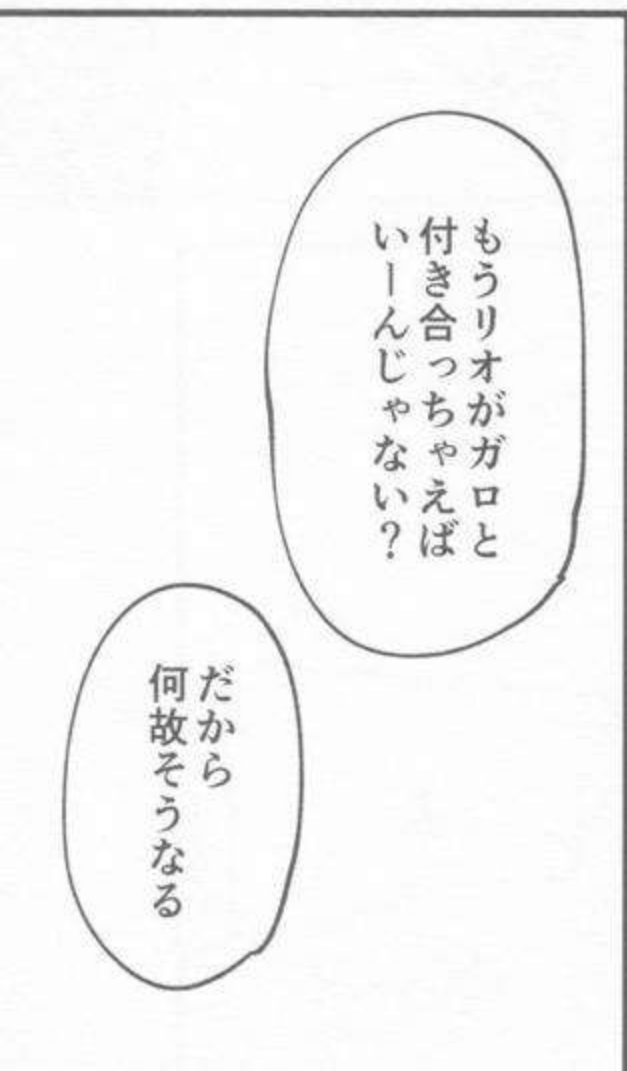 もうリオがガロと
付き合っちゃえば
いーんじゃない？
だから
何故そうなる